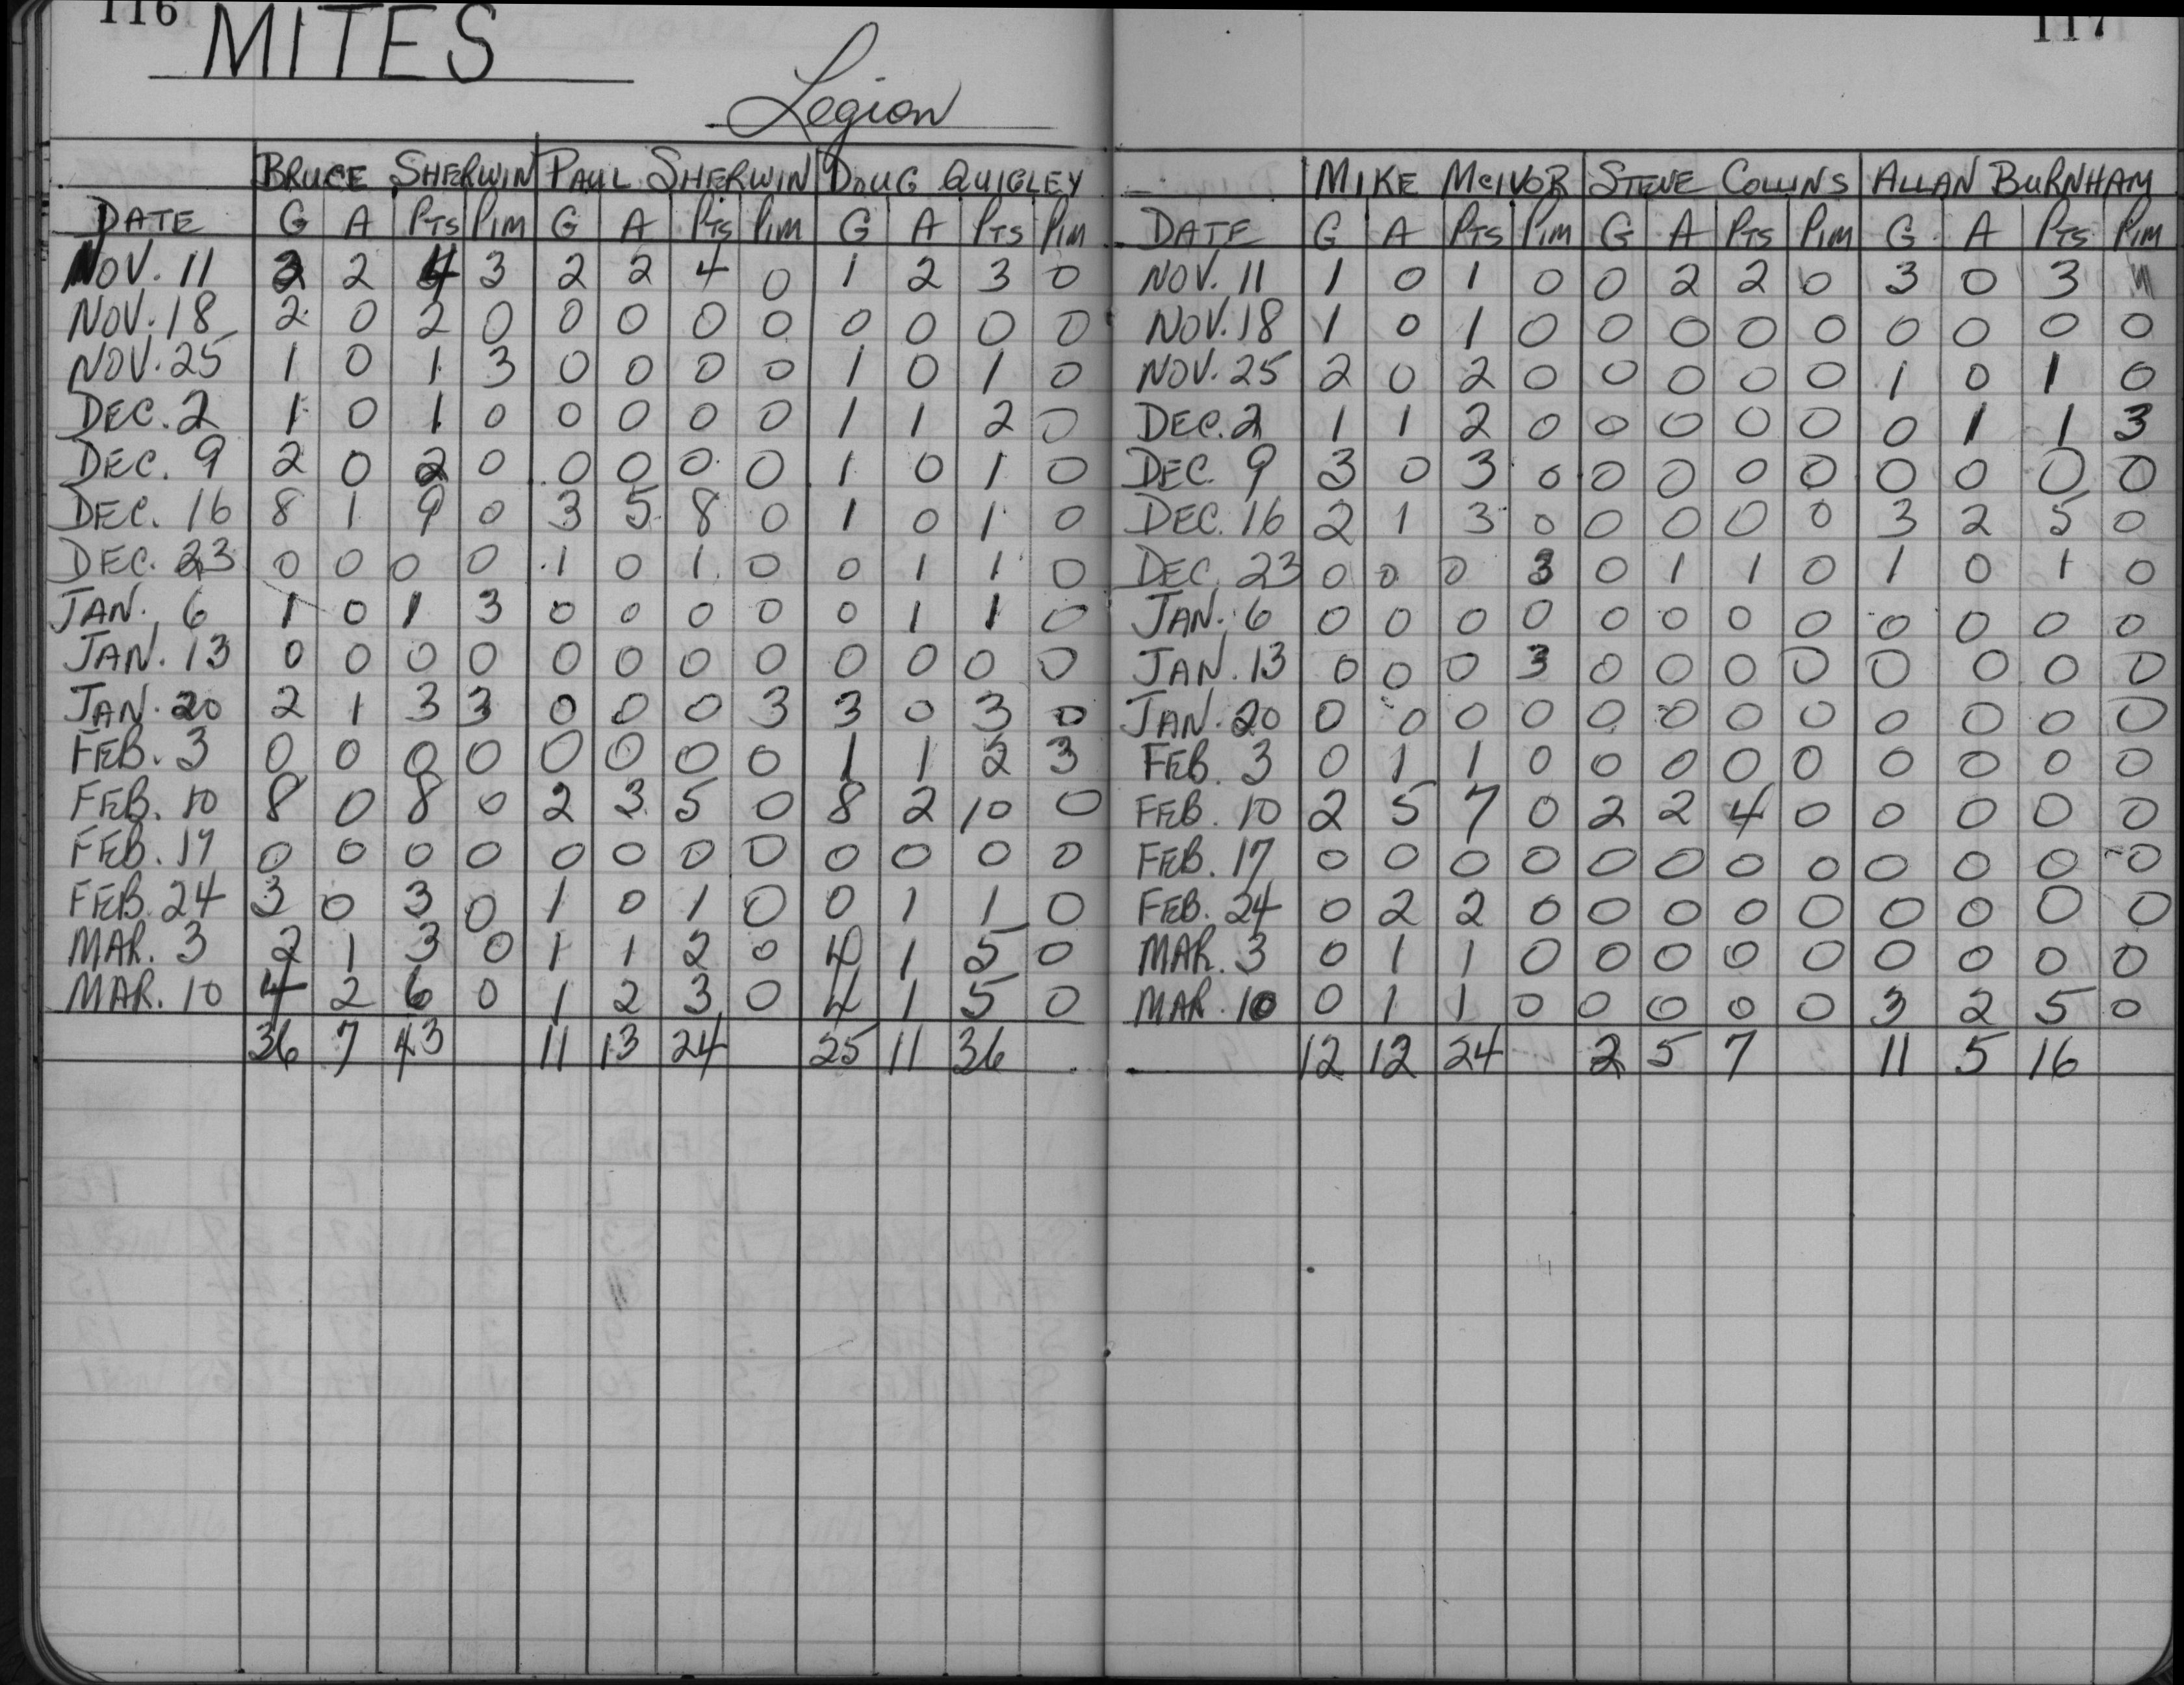 116
MITES
Legion
BRUCE SHERWIN PAUL SHERWIN DOUG QUIGLEY
DATE G A PTS PIM G A PTS PIM G A PTS PIM
NOV. 11 2 2 4 3 2 2 4 0 1 2 3 0
NOV. 18 2 0 2 0 0 0 0 0 0 0 0 0
NOV. 25 1 0 1 3 0 0 0 0 1 0 1 0
DEC. 2 1 0 1 0 0 0 0 0 1 1 2 0
DEC. 9 2 0 2 0 0 0 0 0 1 0 1 0
DEC. 16 8 1 9 0 3 5 8 0 1 0 1 0
DEC. 23 0 0 0 0 1 0 1 0 0 1 1 0
JAN. 6 1 0 1 3 0 0 0 0 0 1 1 0
JAN. 13 0 0 0 0 0 0 0 0 0 0 0 0
JAN. 20 2 1 3 3 0 0 0 3 3 0 3 0
FEB. 3 0 0 0 0 0 0 0 0 1 1 2 3
FEB. 10 8 0 8 0 2 3 5 0 8 2 10 0
FEB. 17 0 0 0 0 0 0 0 0 0 0 0 0
FEB. 24 3 0 3 0 1 0 1 0 0 1 1 0
MAR. 3 2 1 3 0 1 1 2 0 4 1 5 0
MAR. 10 4 2 6 0 1 2 3 0 4 1 5 0
36 7 43 11 13 24 25 11 36
117
MIKE MCIVOR STEVE COLLINS ALLAN BURNHAM
DATE G A PTS PIM G A PTS PIM G A PTS PIM
NOV. 11 1 0 1 0 0 2 2 0 3 0 3
NOV. 18 1 0 1 0 0 0 0 0 0 0 0 0
NOV. 25 2 0 2 0 0 0 0 0 1 0 1 0
DEC. 2 1 1 2 0 0 0 0 0 0 1 1 3
DEC. 9 3 0 3 0 0 0 0 0 0 0 0 0
DEC. 16 2 1 3 0 0 0 0 0 3 2 5 0
DEC. 23 0 0 0 3 0 1 1 0 1 0 1 0
JAN. 6 0 0 0 0 0 0 0 0 0 0 0 0
JAN. 13 0 0 0 3 0 0 0 0 0 0 0 0
JAN. 20 0 0 0 0 0 0 0 0 0 0 0 0
FEB. 3 0 1 1 0 0 0 0 0 0 0 0 0
FEB. 10 2 5 7 0 2 2 4 0 0 0 0 0
FEB. 17 0 0 0 0 0 0 0 0 0 0 0 0
FEB. 24 0 2 2 0 0 0 0 0 0 0 0 0
MAR. 3 0 1 1 0 0 0 0 0 0 0 0 0
MAR. 10 0 1 1 0 0 0 0 0 3 2 5 0
12 12 24 2 5 7 11 5 16